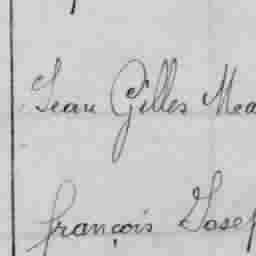 Jean Gilles Mea
françois Josep